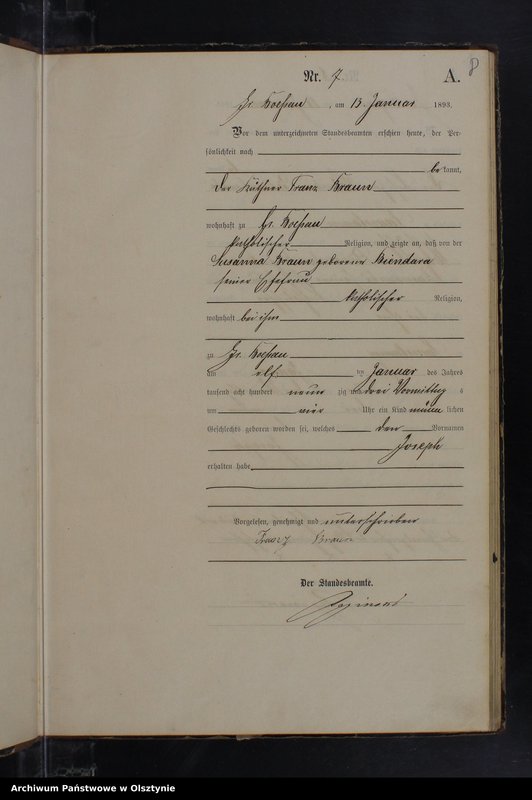 8
Nr. 7 A.
Gr. Koessau, am 13. Januar 1893.
Vor dem unterzeichneten Standesbeamten erschien heute, der Per-
sönlichkeit nach
bekannt,
der Käthner Franz Braun
wohnhaft zu Gr. Koessau
katholischer Religion, und zeigte an, daß von der
Susanna Braun geborene Biendara
seiner Ehefrau
katholischer Religion,
wohnhaft bei ihm
zu Gr. Koessau
am elf ten Januar des Jahres
tausend acht hundert neun zig und drei Vormittag s
um vier Uhr ein Kind männ lichen
Geschlechts geboren worden sei, welches den Vornamen
Joseph
erhalten habe
Vorgelesen, genehmigt und unterschrieben
Franz Braun
Der Standesbeamte.
Archiwum Państwowe w Olsztynie